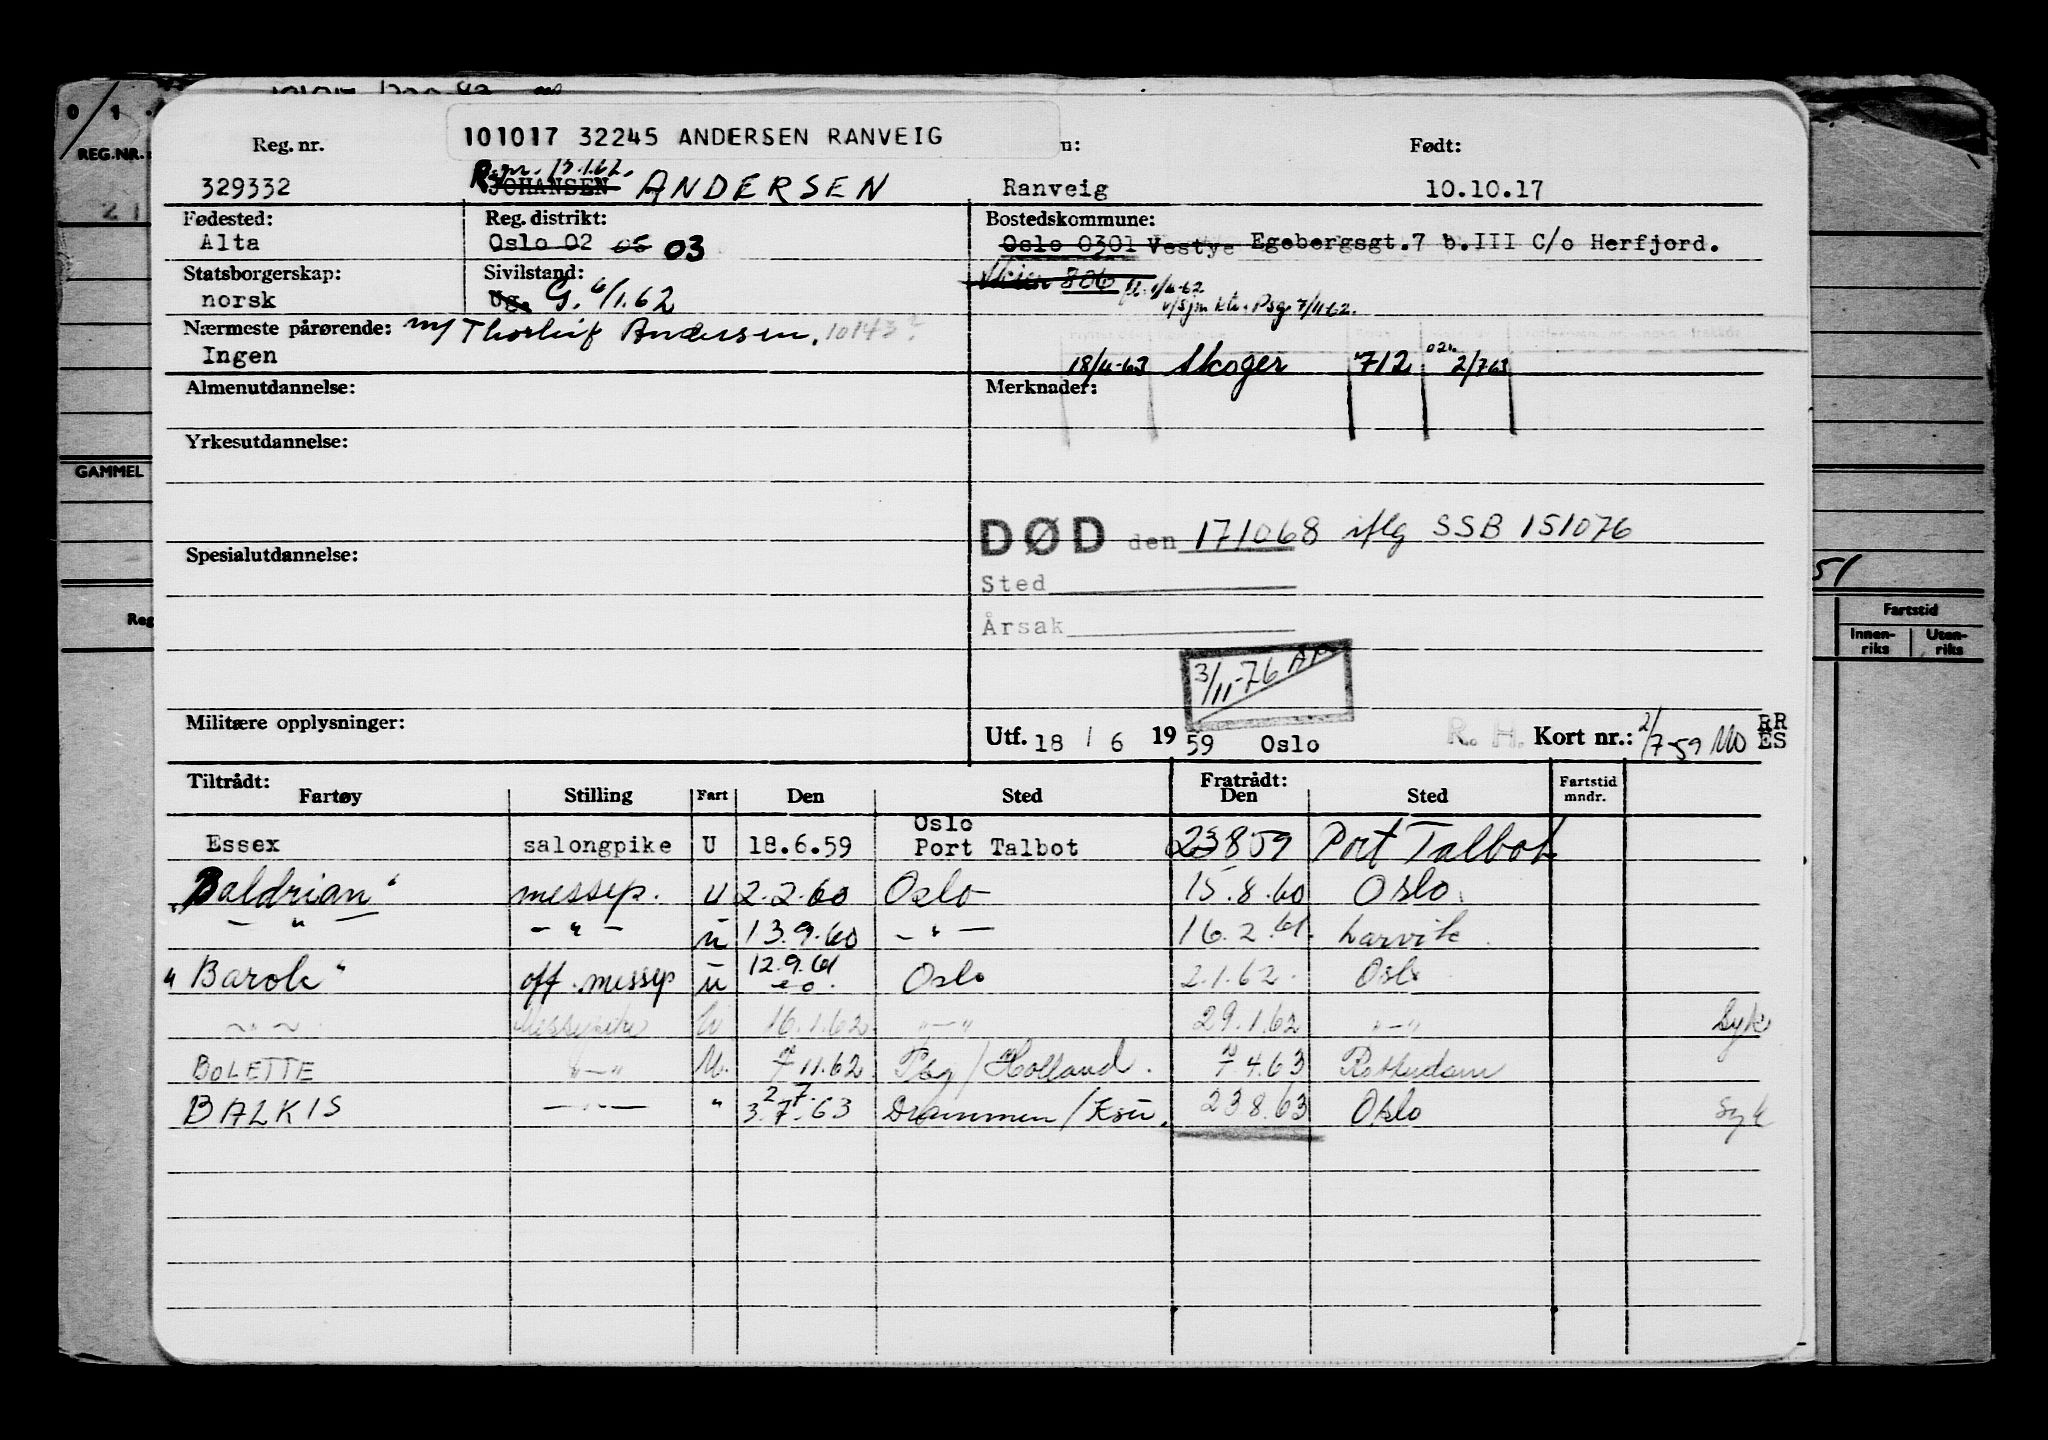 101017 32245 ANDERSEN RANVEIG
Reg. nr. n: Født:
329332 JOHANSEN ANDERSEN Ranveig 10.10.17
Fødested: Reg. distrikt: Bostedskommune:
Alta Oslo 02 05 03 Oslo 0301 Vestye Egebergsgt.7 b.III C/o Herfjord.
Statsborgerskap: Sivilstand: Skien 806
norsk Ug. G. 6/1.62
Nærmeste pårørende: m/ Thorleif Andersen. 10143?
Ingen 18/4-63 Skoger 712 2/763
Almenutdannelse: Merknader:
Yrkesutdannelse:
DØD den 171068 iflg SSB 151076
Spesialutdannelse:
Sted
Årsak
3/11-76
Militære opplysninger: Utf. 18 / 6 1959 Oslo R. H. Kort nr.: 2/7-59 MO RR ES
Tiltrådt: Fratrådt:
Fartøy Stilling Fart Den Sted Den Sted Fartstid mndr.
Oslo
Essex salongpike U 18.6.59 Port Talbot 23859 Port Talbot
"Baldrian" messep. u 2.2.60 Oslo 15.8.60 Oslo
— " — — " — u 13.9.60 — " — 16.2.61. Larvik
"Barok" off. messep u 12.9.61 Oslo 2.1.62 Oslo
~ " ~ Messepike U 16.1.62 "—" 29.1.62 "—" Syk
BOLETTE "—" U. 7 11.62 Psg/Holland. 7.4.63 Rotterdam
BALKIS — " — " 3.7.63 Drammen/ 23 8.63 Oslo Syk
REG.NR.
GAMMEL
Reg
51
Fartstid
Innen-riks Uten-riks